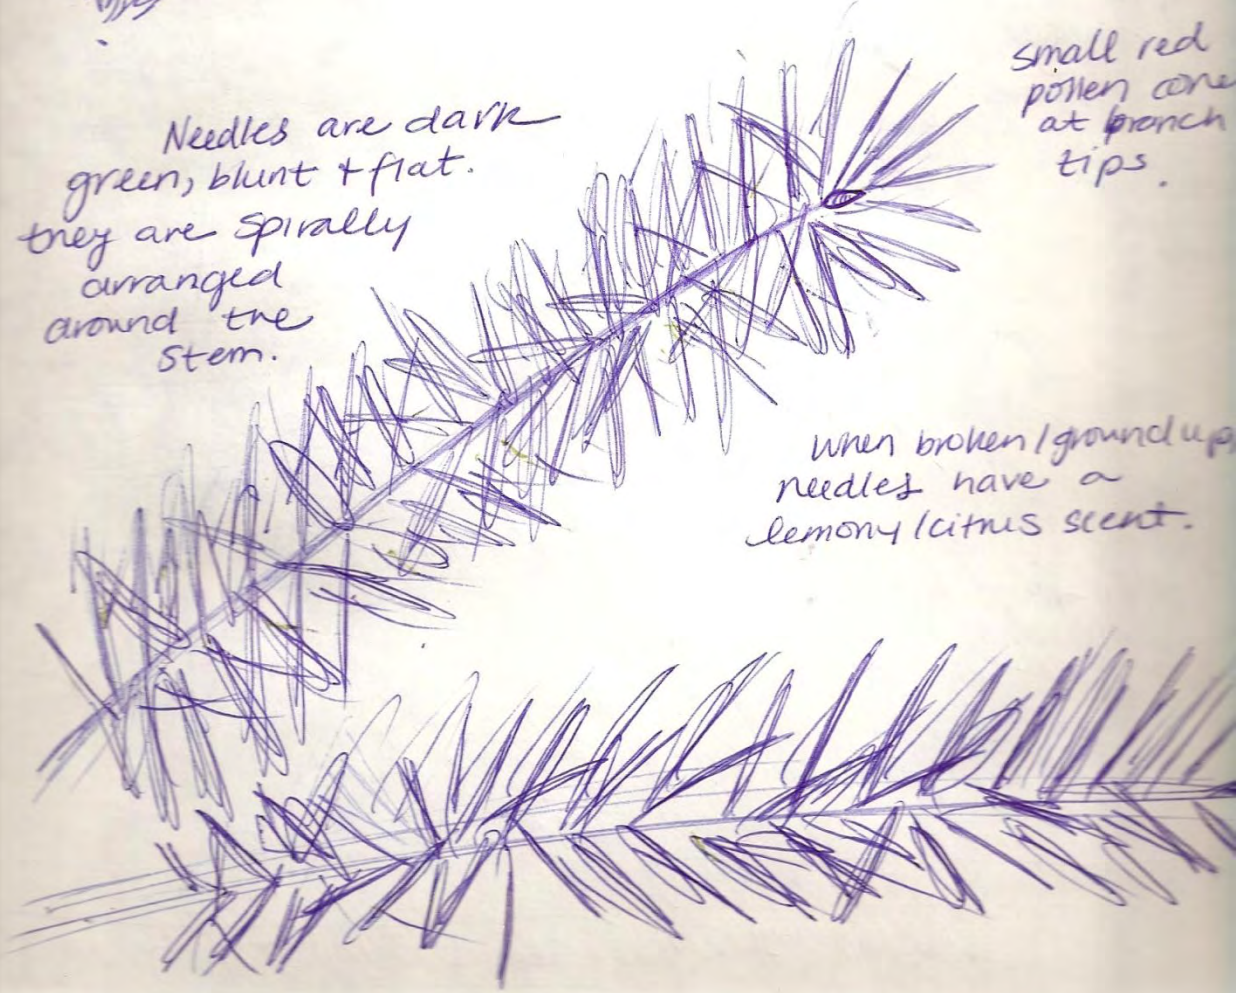 Needles are dark
green, blunt + flat.
they are spirally
arranged
around the
stem.
small red
pollen cone
at branch
tips.
when broken/ground up,
needles have a
lemony/citrus scent.